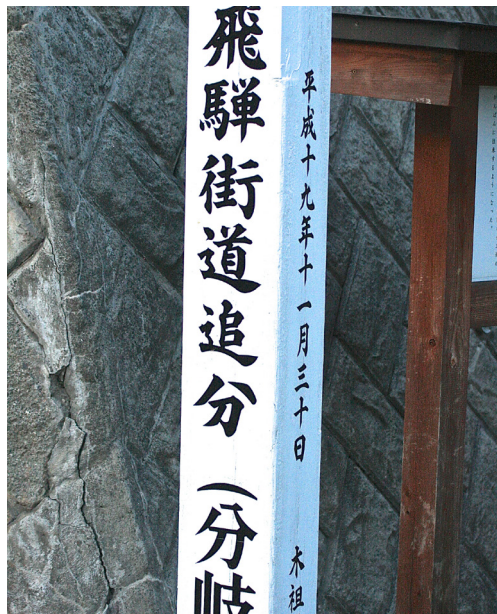 飛騨街道追分（分岐
平成十九年十一月三十日　木祖